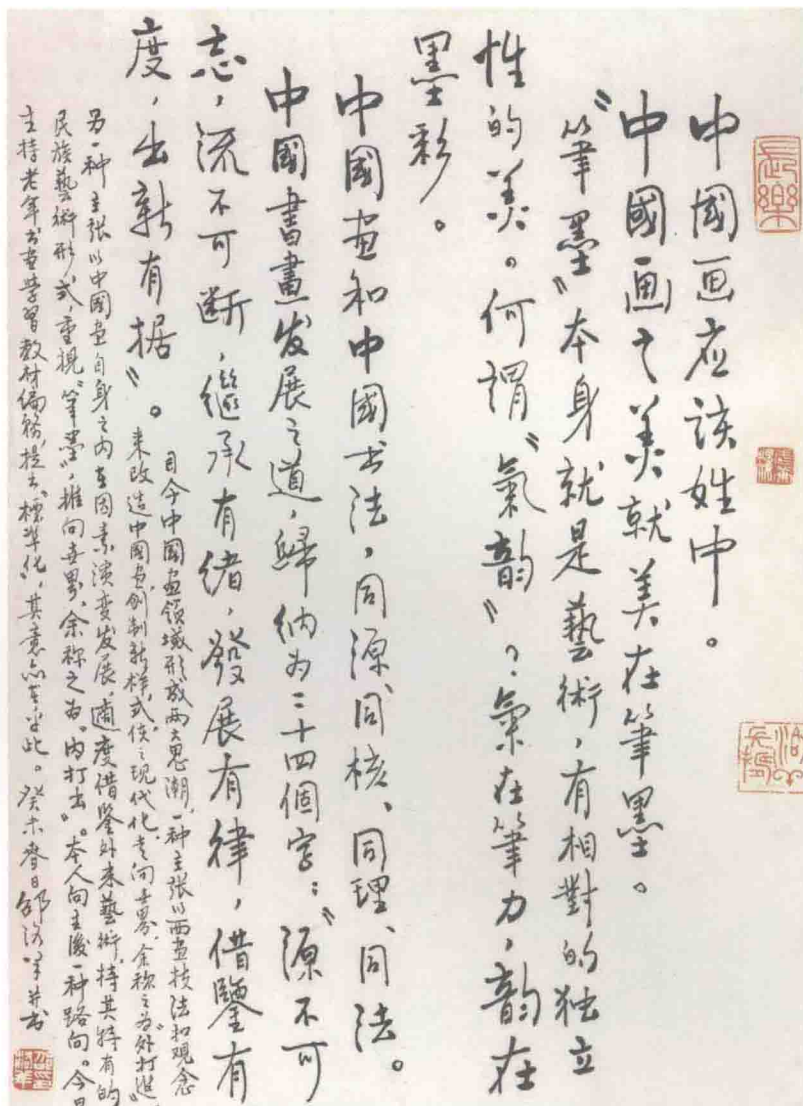 中國画应该姓中。
中國画之美就美在筆墨。
“筆墨”本身就是藝術，有相對的独立
性的美。何謂“氣韵”？氣在筆力，韵在
墨彩。
中國画和中國书法，同源、同核、同理、同法。
中國書畫发展之道，歸纳为二十四個字：“源不可
志，流不可断，繼承有緒，發展有律，借鑒有
度，出新有据”。
目今中國画領域形成两大思潮，一种主张以西画技法和观念
来改造中國画，创制新样式，使之现代化，走向世界，余称之为“外打进”。
另一种主张以中國画自身之内在因素演变发展，適度借鉴外来藝術，持其特有的
民族藝術形式，重視“筆墨”，推向世界，余称之为“内打出”。本人向主後一种路向。今日
主持老年书画学習教材编務，提出“標準化”，其意亦在乎此。癸未春日邵洛羊并书
長樂